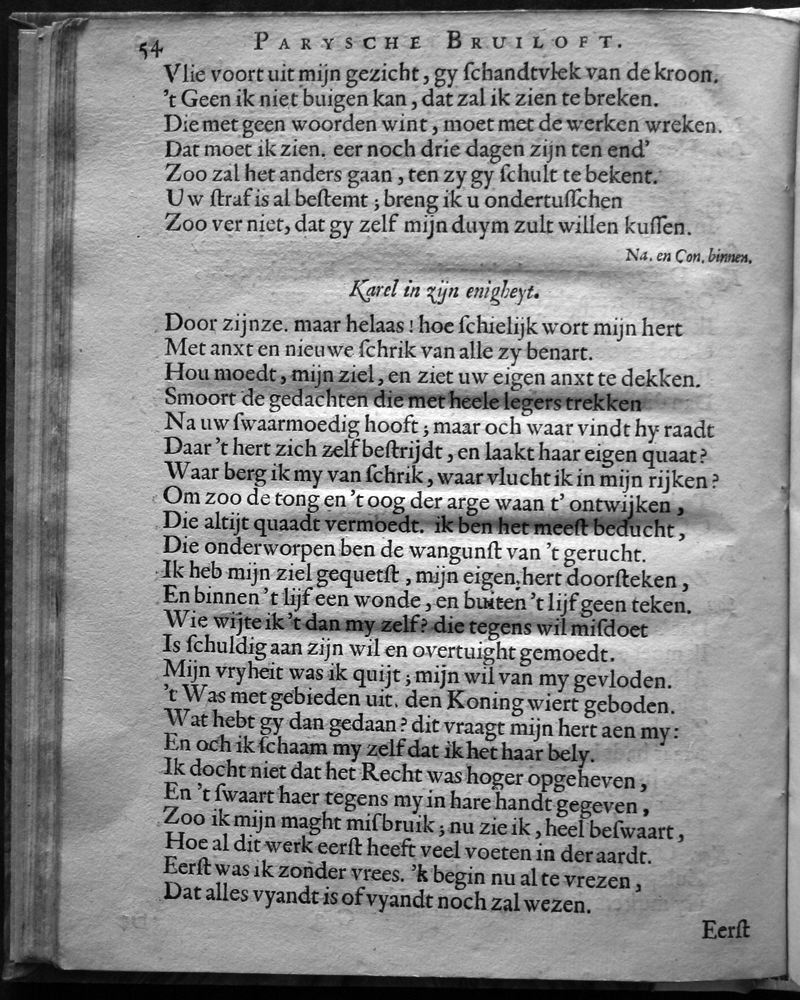 54 PARYSCHE BRUILOFT.
Vlie voort uit mijn gezicht, gy ſchandtvlek van de kroon.
't Geen ik niet buigen kan, dat zal ik zien te breken.
Die met geen woorden wint, moet met de werken wreken.
Dat moet ik zien. eer noch drie dagen zijn ten end'
Zoo zal het anders gaan, ten zy gy ſchult te bekent.
Uw ſtraf is al beſtemt; breng ik u ondertuſſchen
Zoo ver niet, dat gy zelf mijn duym zult willen kuſſen.
Na. en Con. binnen.
Karel in zijn enigheyt.
Door zijnze. maar helaas! hoe ſchielijk wort mijn hert
Met anxt en nieuwe ſchrik van alle zy benart.
Hou moedt, mijn ziel, en ziet uw eigen anxt te dekken.
Smoort de gedachten die met heele legers trekken
Na uw ſwaarmoedig hooft; maar och waar vindt hy raadt
Daar 't hert zich zelf beſtrijdt, en laakt haar eigen quaat?
Waar berg ik my van ſchrik, waar vlucht ik in mijn rijken?
Om zoo de tong en 't oog der arge waan t' ontwijken,
Die altijt quaadt vermoedt. ik ben het meeſt beducht,
Die onderworpen ben de wangunſt van 't gerucht.
Ik heb mijn ziel gequetſt, mijn eigen hert doorſteken,
En binnen 't lijf een wonde, en buiten 't lijf geen teken.
Wie wijte ik 't dan my zelf? die tegens wil miſdoet
Is ſchuldig aan zijn wil en overtuight gemoedt.
Mijn vryheit was ik quijt; mijn wil van my gevloden.
't Was met gebieden uit. den Koning wiert geboden.
Wat hebt gy dan gedaan? dit vraagt mijn hert aen my:
En och ik ſchaam my zelf dat ik het haar bely.
Ik docht niet dat het Recht was hoger opgeheven,
En 't ſwaart haer tegens my in hare handt gegeven,
Zoo ik mijn maght miſbruik; nu zie ik, heel beſwaart,
Hoe al dit werk eerſt heeft veel voeten in der aardt.
Eerſt was ik zonder vrees. 'k begin nu al te vrezen,
Dat alles vyandt is of vyandt noch zal wezen.
Eerſt